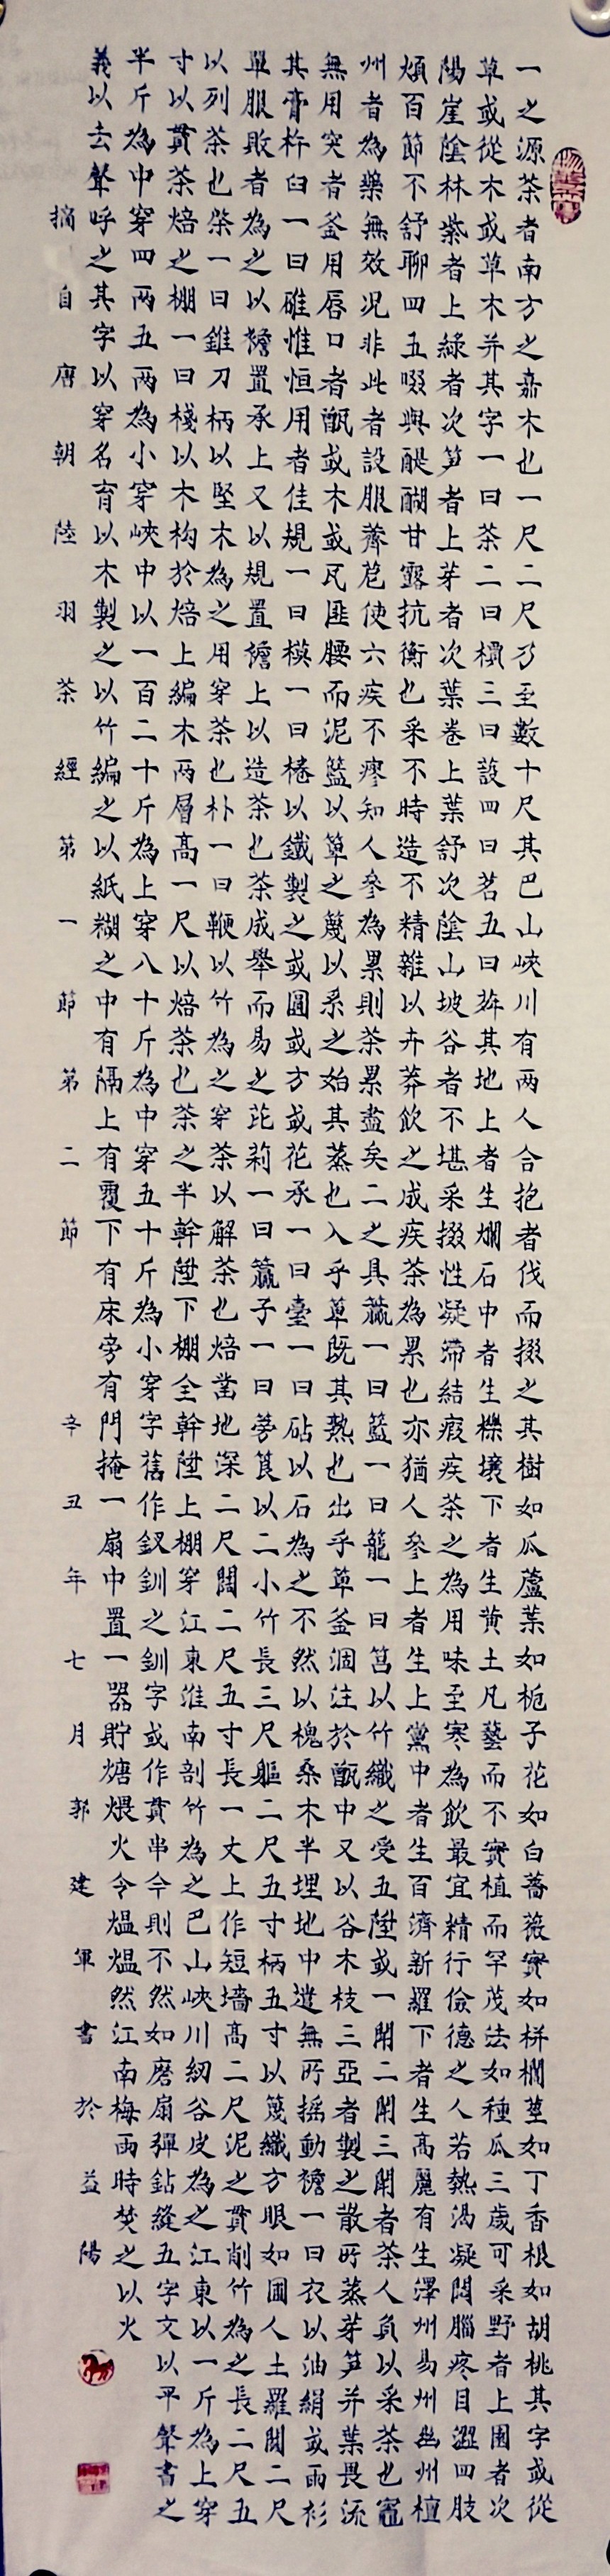 一之源茶者南方之嘉木也一尺二尺乃至數十尺其巴山峽川有两人合抱者伐而掇之其樹如瓜蘆葉如栀子花如白薔薇實如栟櫚莖如丁香根如胡桃其字或從
草或從木或草木并其字一曰茶二曰檟三曰設四曰茗五曰荈其地上者生爛石中者生櫟壤下者生黄土凡藝而不實植而罕茂法如種瓜三歲可采野者上園者次
陽崖陰林紫者上綠者次笋者上芽者次葉卷上葉舒次陰山坡谷者不堪采掇性凝滯結瘕疾茶之為用味至寒為飲最宜精行儉德之人若熱渴凝悶腦疼目澀四肢
煩百節不舒聊四五啜與醍醐甘露抗衡也采不時造不精雜以卉莽飲之成疾茶為累也亦猶人參上者生上黨中者生百濟新羅下者生高麗有生澤州易州幽州檀
州者為藥無效况非此者設服薺苨使六疾不瘳知人參為累則茶累盡矣二之具籯一曰籃一曰籠一曰筥以竹織之受五陞或一閗二閗三閗者茶人負以采茶也竈
無用突者釜用唇口者甑或木或瓦匪腰而泥籃以箄之篾以系之始其蒸也入乎箄既其熟也出乎箄釜涸注於甑中又以谷木枝三亞者製之散所蒸芽笋并葉畏流
其膏杵臼一曰碓惟恒用者佳規一曰模一曰棬以鐵製之或圓或方或花承一曰臺一曰砧以石為之不然以槐桑木半埋地中遣無所摇動襜一曰衣以油絹或雨衫
單服敗者為之以襜置承上又以規置襜上以造茶也茶成舉而易之芘莉一曰籯子一曰篣筤以二小竹長三尺軀二尺五寸柄五寸以篾織方眼如圃人土羅闊二尺
以列茶也棨一曰錐刀柄以堅木為之用穿茶也朴一曰鞭以竹為之穿茶以解茶也焙凿地深二尺闊二尺五寸長一丈上作短墻高二尺泥之貫削竹為之長二尺五
寸以貫茶焙之棚一曰棧以木构於焙上編木两層高一尺以焙茶也茶之半幹陞下棚全幹陞上棚穿江東淮南剖竹為之巴山峽川紉谷皮為之江東以一斤為上穿
半斤為中穿四两五两為小穿峽中以一百二十斤為上穿八十斤為中穿五十斤為小穿字舊作釵釧之釧字或作貫串今則不然如磨扇彈鉆縫五字文以平聲書之
義以去聲呼之其字以穿名育以木製之以竹編之以紙糊之中有隔上有覆下有床旁有門掩一扇中置一器貯煻煨火令煴煴然江南梅雨時焚之以火
摘自唐朝陸羽茶經第一節第二節 辛丑年七月郭建軍書於益陽